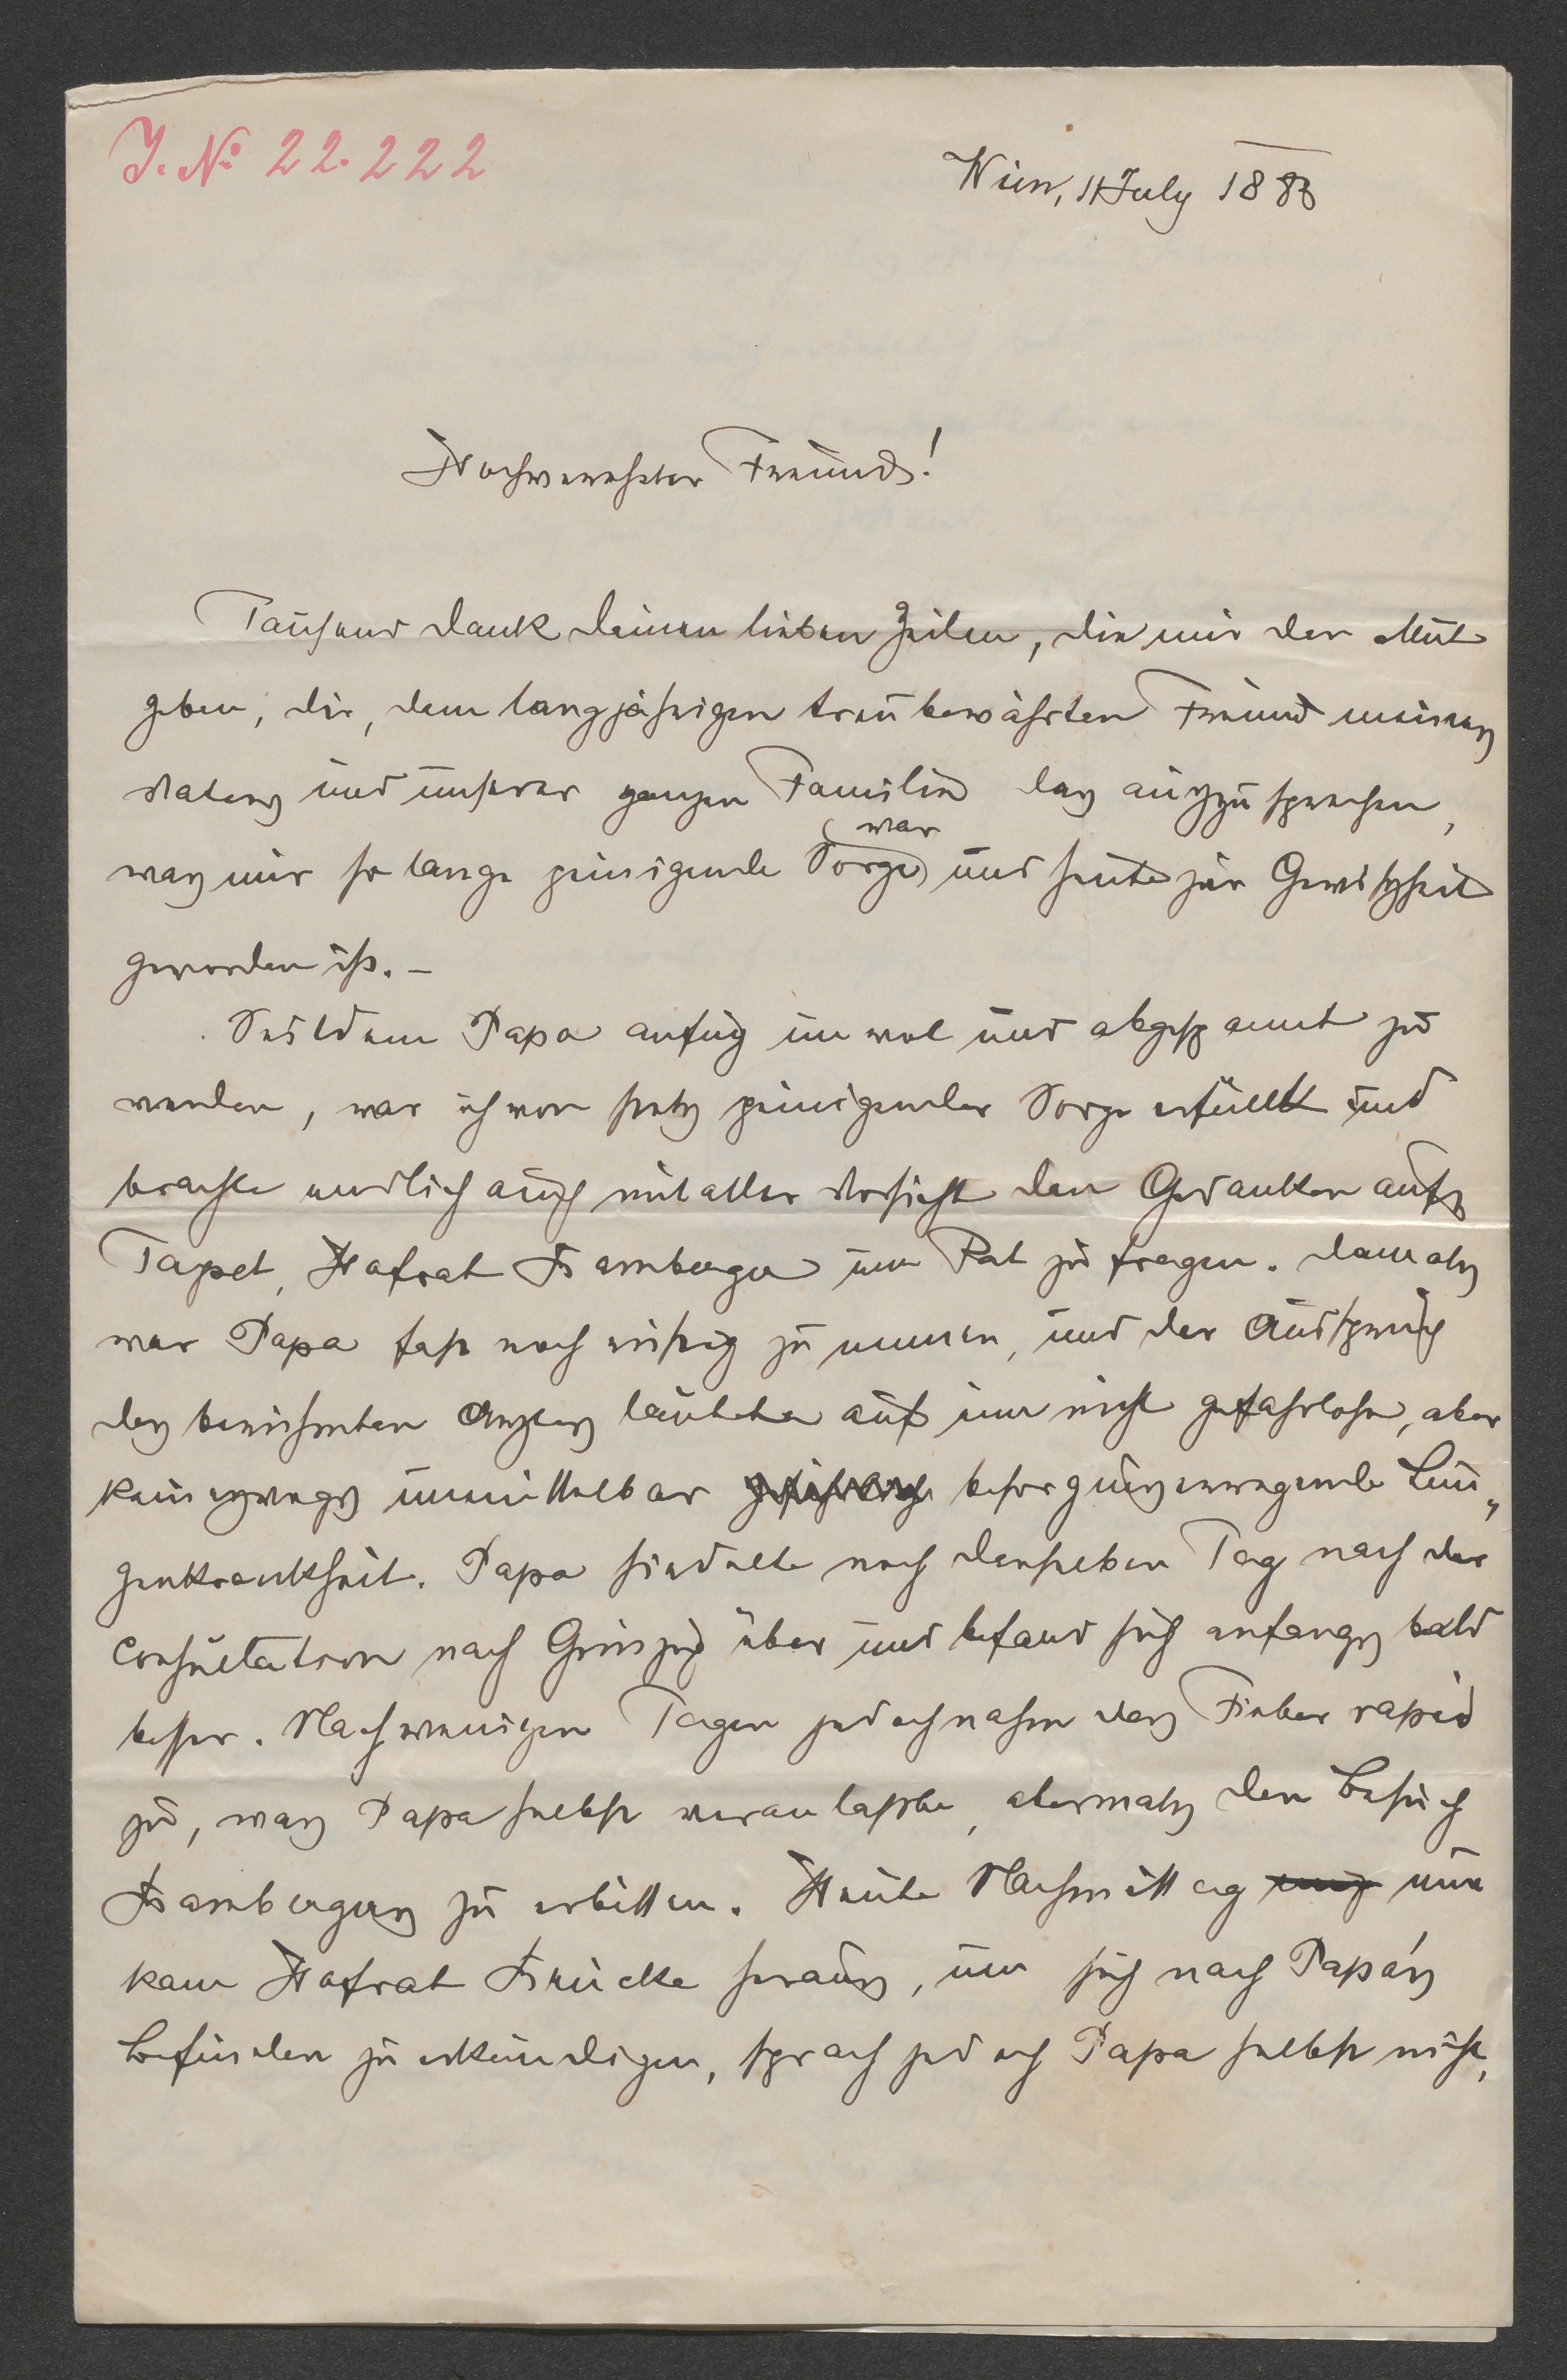 J. No 22.222
Wien, 11 July 188
Hochverehrter Freund!
Tausend Dank Deinen lieben Zeilen, die mir den Mut
geben, dir, dem langjährigen treubewährten Freund meines
Vaters und unserer ganzen Familie das auszusprechen,
war
was mir so lange peinigende Sorge, und heute zur Gewißheit
geworden ist. –
Seitdem Papa anfing unwol und abgespannt zu
werden, war ich von stets peinigender Sorge erfüllt und
brachte endlich auch mit aller Vorsicht den Gedanken aufs
Tapet, Hofrat Bamberger um Rat zu fragen. Damals
war Papa fast noch rüstig zu nennen, und der Ausspruch
des berühmten Arztes lautete auf eine nicht gefahrlose, aber
keineswegs unmittelbar besorgniserregende Lun„
genkrankheit. Papa siedelte noch denselben Tag nach der
Consultation nach Grinzing über und befand sich anfangs bald
besser. Nach wenigen Tagen jedoch nahm das Fieber rapid
zu, was Papa selbst veranlaßte, abermals den Besuch
Bambergers zu erbitten. Heute Nachmittag nun
kam Hofrat Brücke heraus, um sich nach Papa's
Befinden zu erkundigen, sprach jedoch Papa selbst nicht,